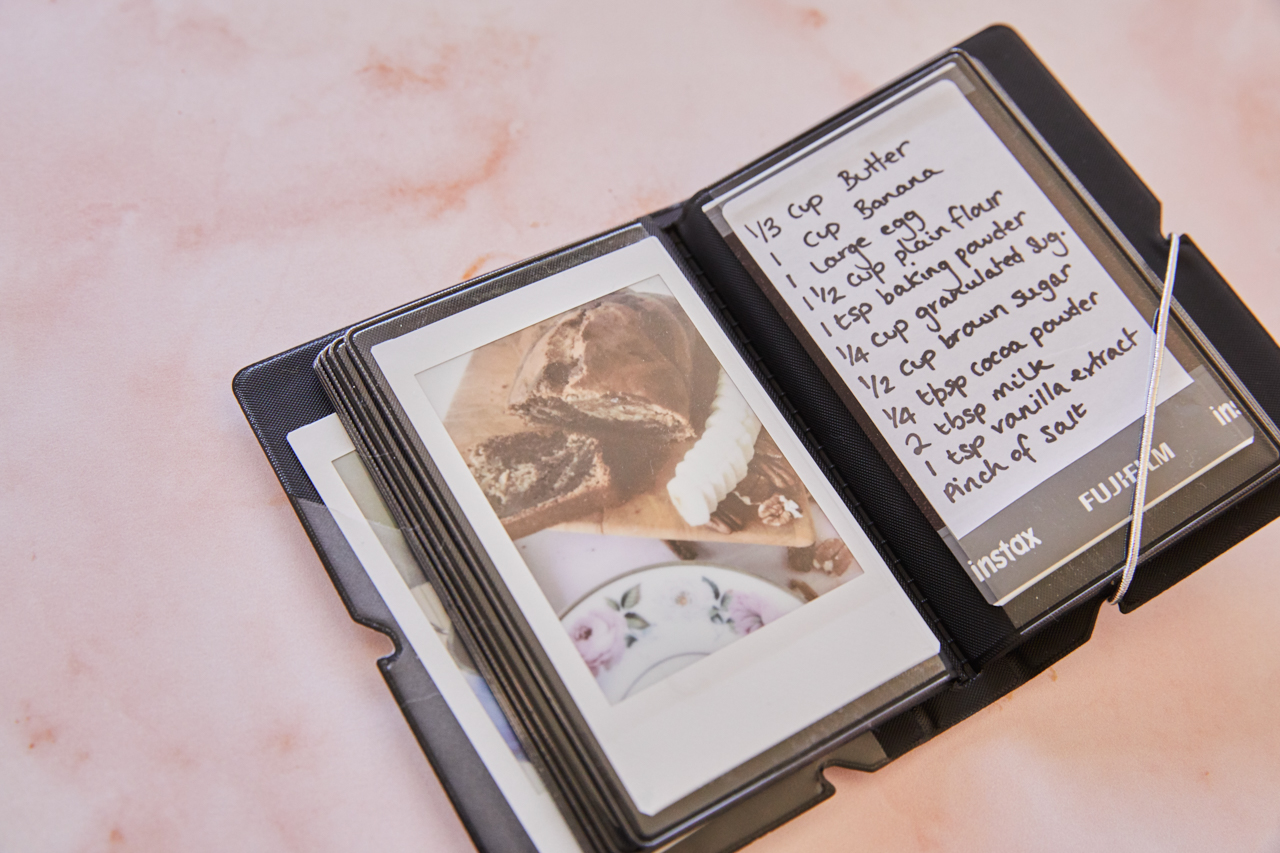 1/3 cup Butter
1 cup Banana
1 large egg
1 1/2 cup plain flour
1 tsp baking powder
1/4 cup granulated sug.
1/2 cup brown sugar
1/4 tbsp cocoa powder
2 tbsp milk
1 tsp vanilla extract
pinch of salt
instax FUJIFILM ins